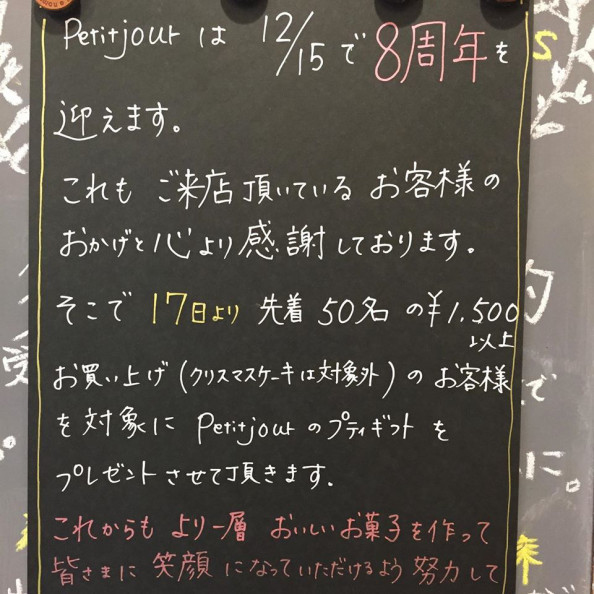 Petitjour は 12/15 で 8周年を
迎えます。
これも ご来店頂いている お客様の
おかげと心より感謝しております。
そこで 17日より 先着 50名 の¥1,500
以上
お買い上げ(クリスマスケーキは対象外)の お客様
を対象に Petitjour のプティギフト を
プレゼントさせて頂きます.
これからも より一層 おいしいお菓子を作って
皆さまに 笑顔 になっていただけるよう 努力して